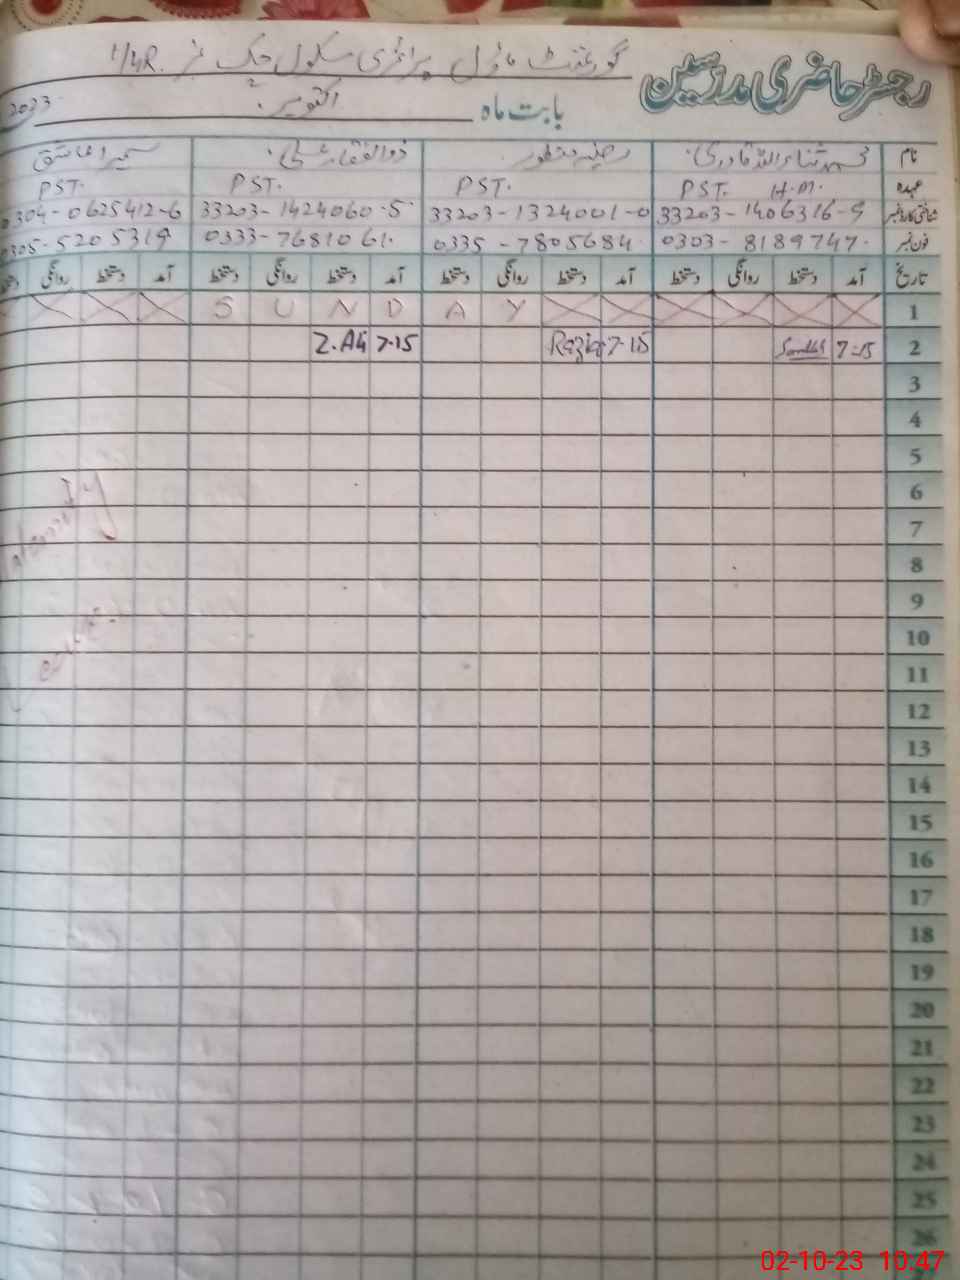 رجسٹر حاضری مدرسین
گورنمنٹ ماڈل پرائمری سکول چک نمبر 1/4R.
بابت ماہ اکتوبر 2023
نام محمد ثناء اللہ قادری رضیہ منظور ذوالفقار علی سمیرا عاشق
عہدہ PST. H.M. PST. PST. PST.
شناختی کارڈ نمبر 33203-1406316-9 33203-1324001-0 33203-1424060-5 0304-0625412-6
فون نمبر 0303-8189747 0335-7805684 0333-7681061 0305-5205319
تاریخ آمد دستخط روانگی دستخط آمد دستخط روانگی دستخط آمد دستخط روانگی دستخط آمد دستخط روانگی
1 S U N D A Y
2 7-15 7-15 Razia 7-15 Z.Ali
3
4
5
6
7
8
9
10
11
12
13
14
15
16
17
18
19
20
21
22
23
24
25
26
02-10-23 10:47